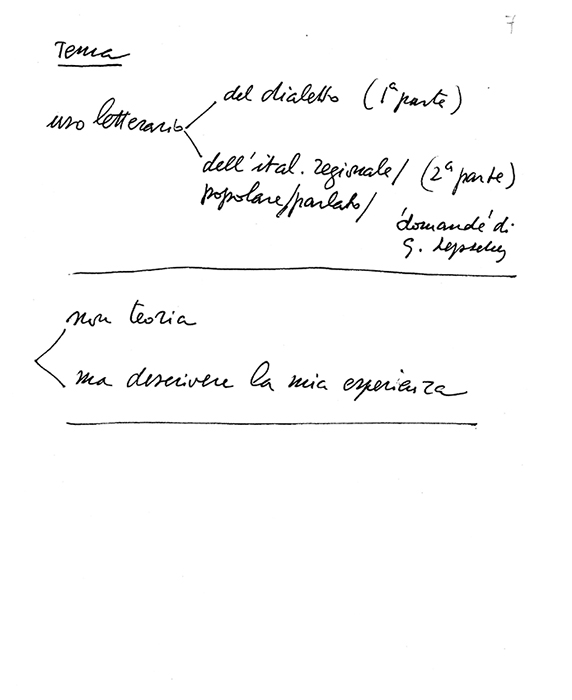 7
Tema
uso letterario
del dialetto (1ª parte)
dell'ital. regionale/ (2ª parte)
popolare/parlato/
'domande' di
G. Lepschy
non teoria
ma descrivere la mia esperienza